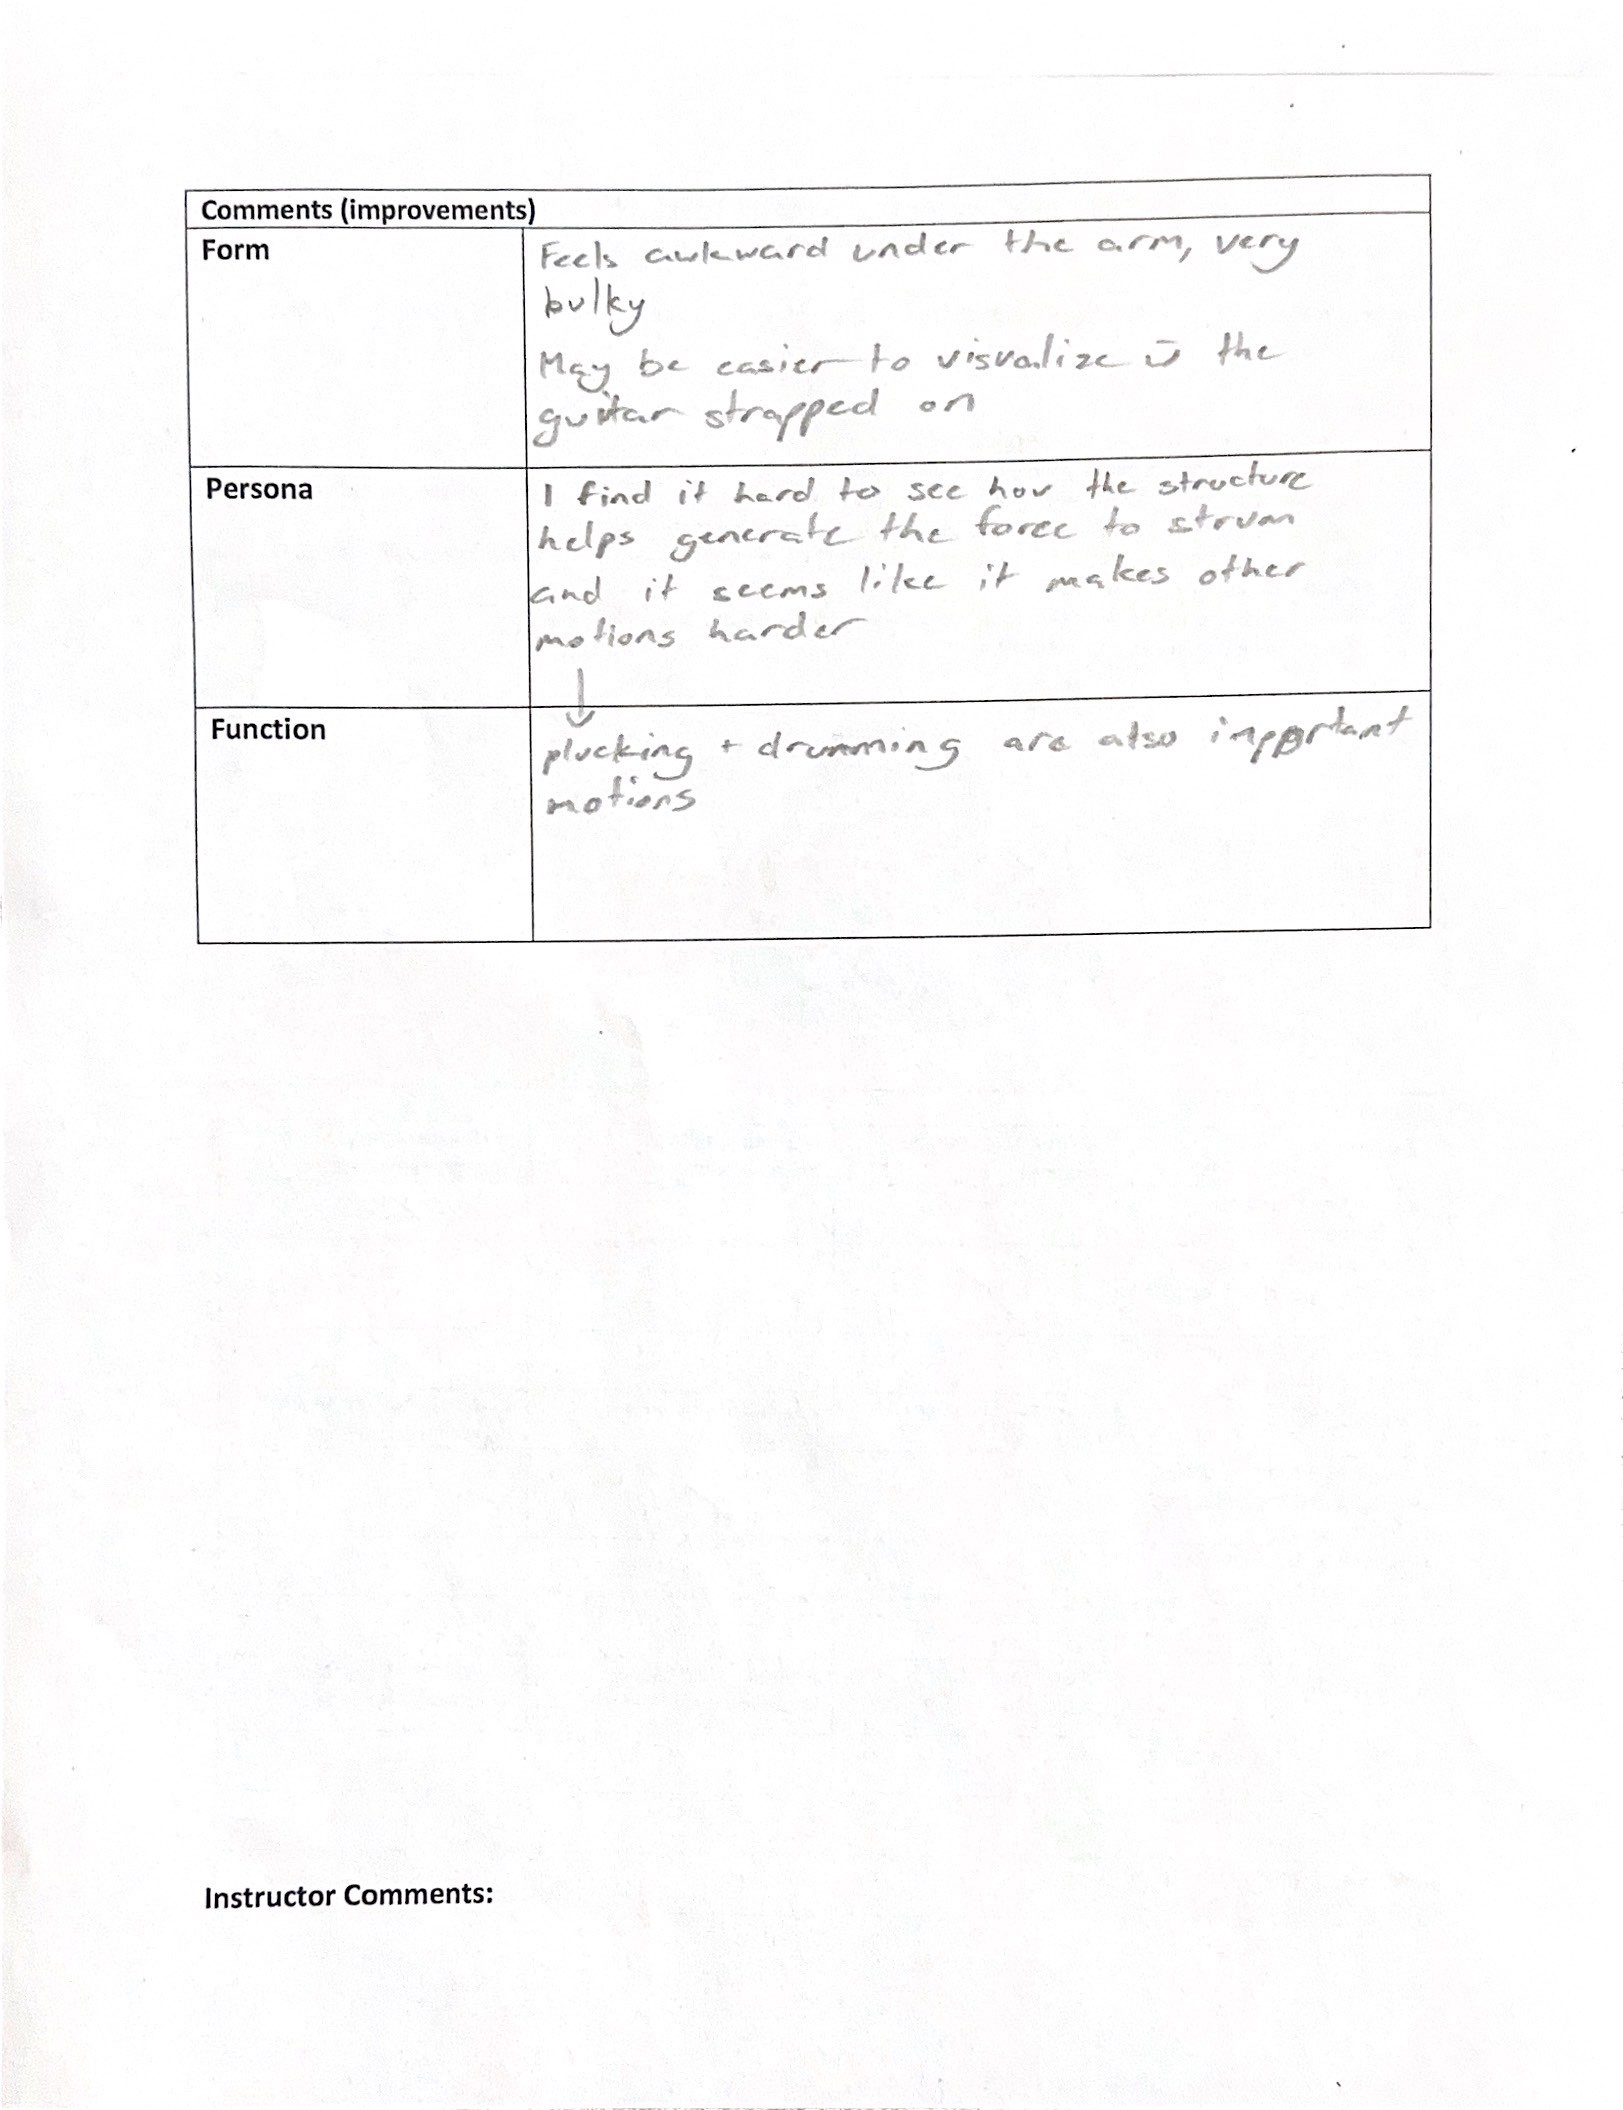 Comments (improvements)
Form
Feels awkward under the arm, very
bulky
May be easier to visualize w̄ the
guitar strapped on
Persona
I find it hard to see how the structure
helps generate the force to strum
and it seems like it makes other
motions harder
↓
Function
plucking + drumming are also important
motions
Instructor Comments: